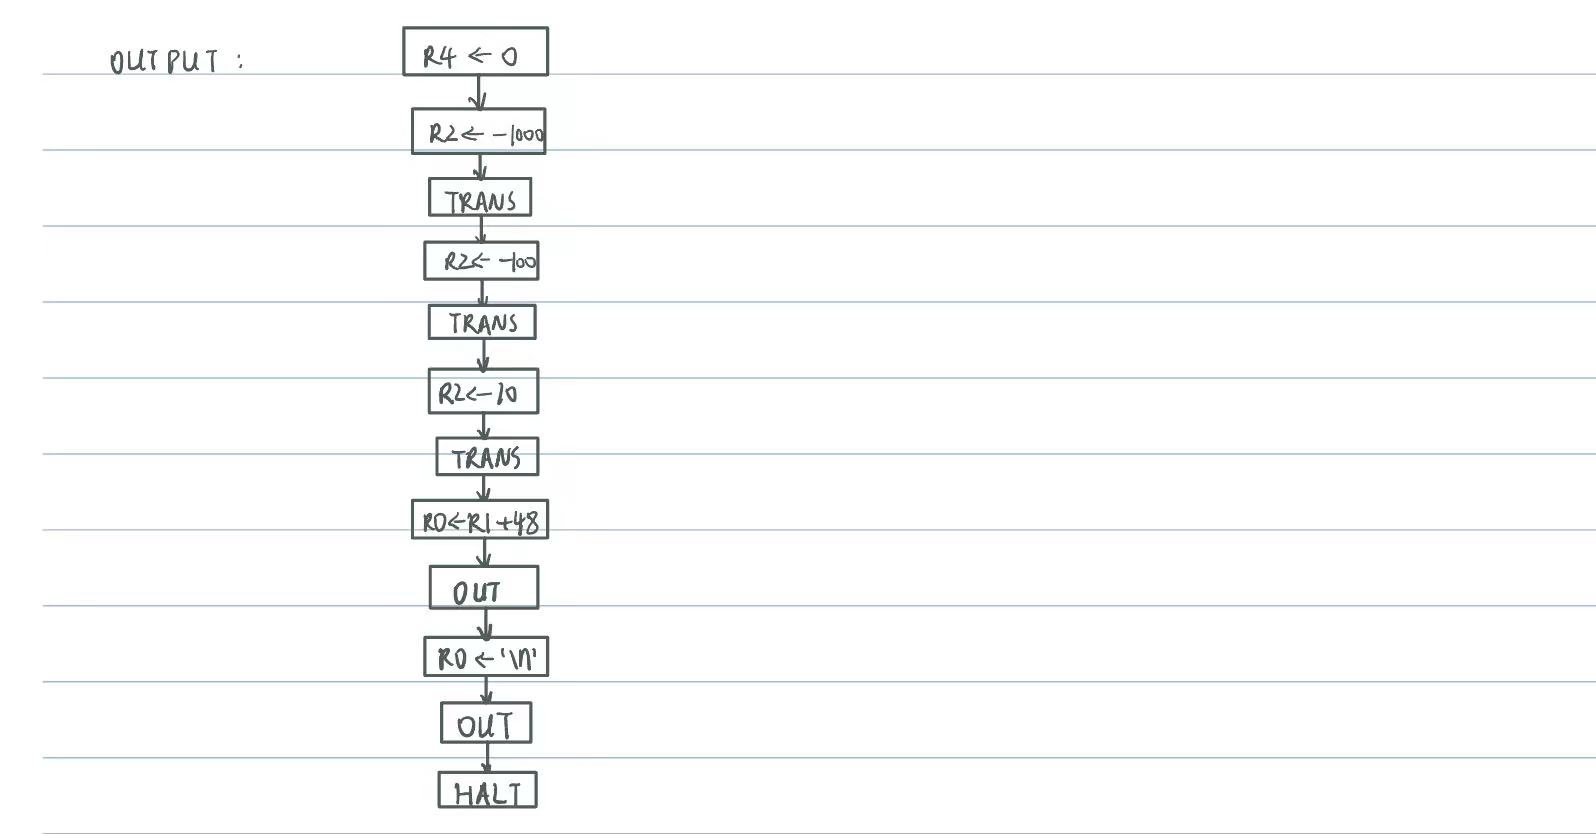 OUTPUT:
R4 ← 0
R2 ← -1000
TRANS
R2 ← -100
TRANS
R2 ← -10
TRANS
R0 ← R1 + 48
OUT
R0 ← '\n'
OUT
HALT